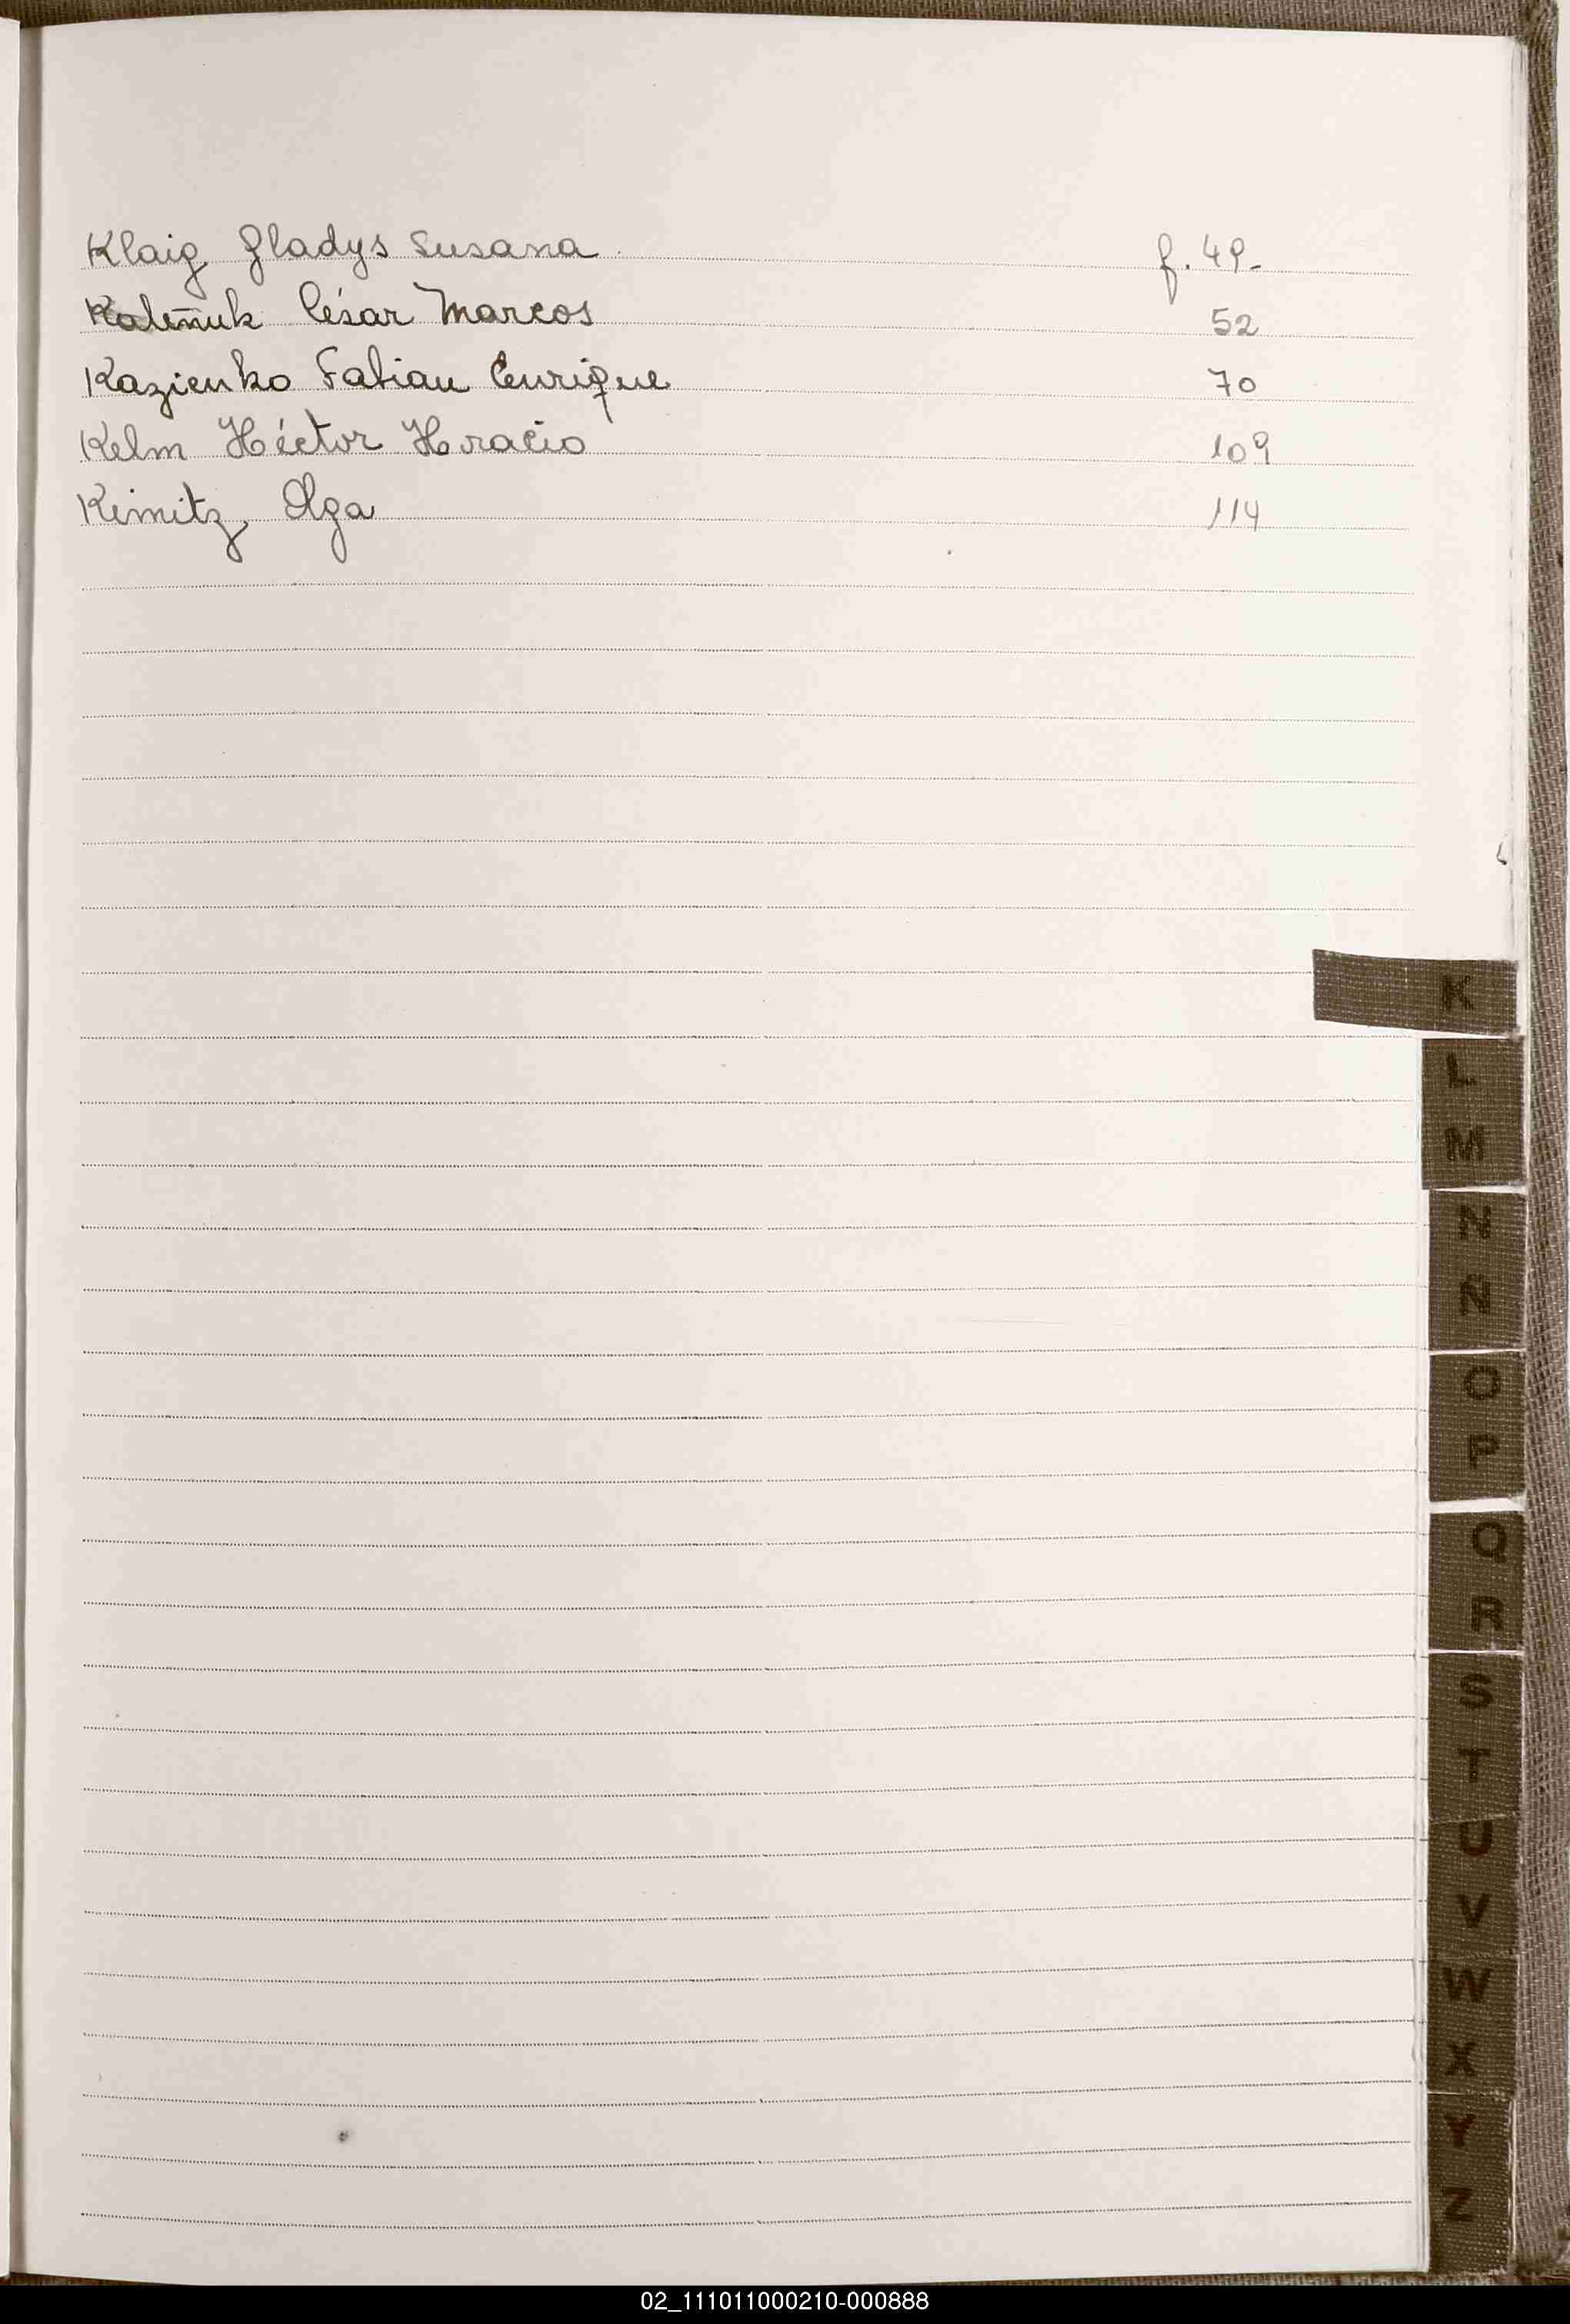 Klaig Gladys Susana f. 49-
Kaleñuk César Marcos 52
Kazienko Fabian Enrique 70
Kelm Héctor Horacio 109
Kimitz Olga 114
K
L
M
N
Ñ
O
P
Q
R
S
T
U
V
W
X
Y
Z
02_111011000210-000888